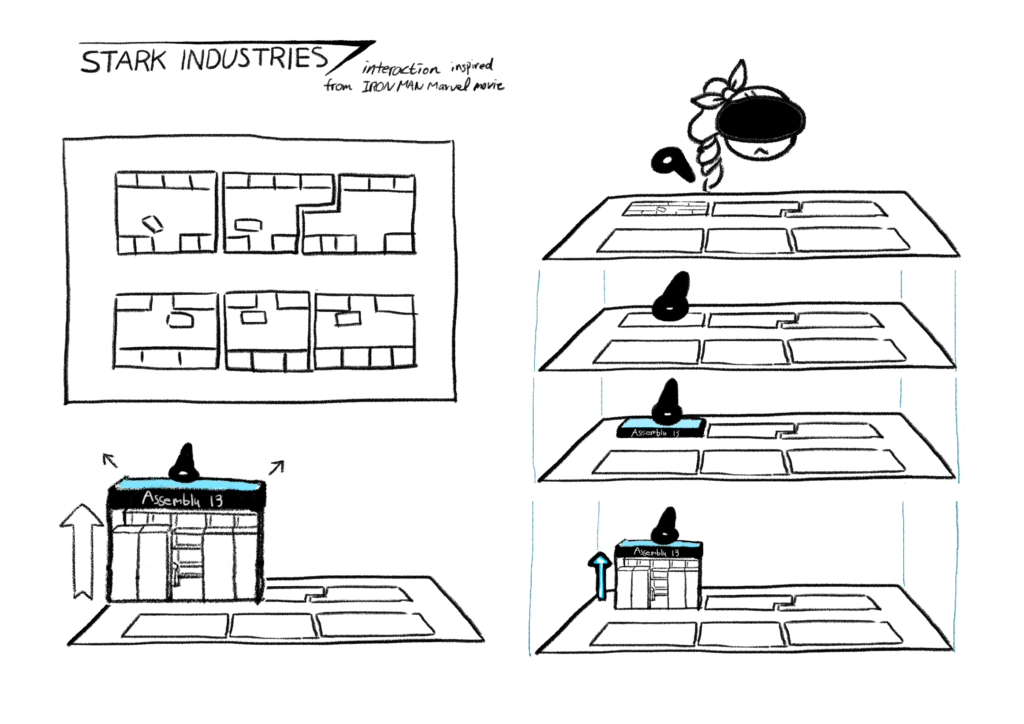 STARK INDUSTRIES
interaction inspired
from IRON MAN Marvel movie
Assembly 13
Assembly 13
Assembly 13